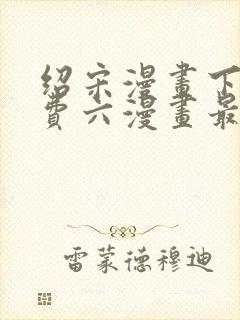 绍宋漫畫下
費六漫畫最
雷蒙德穆迪